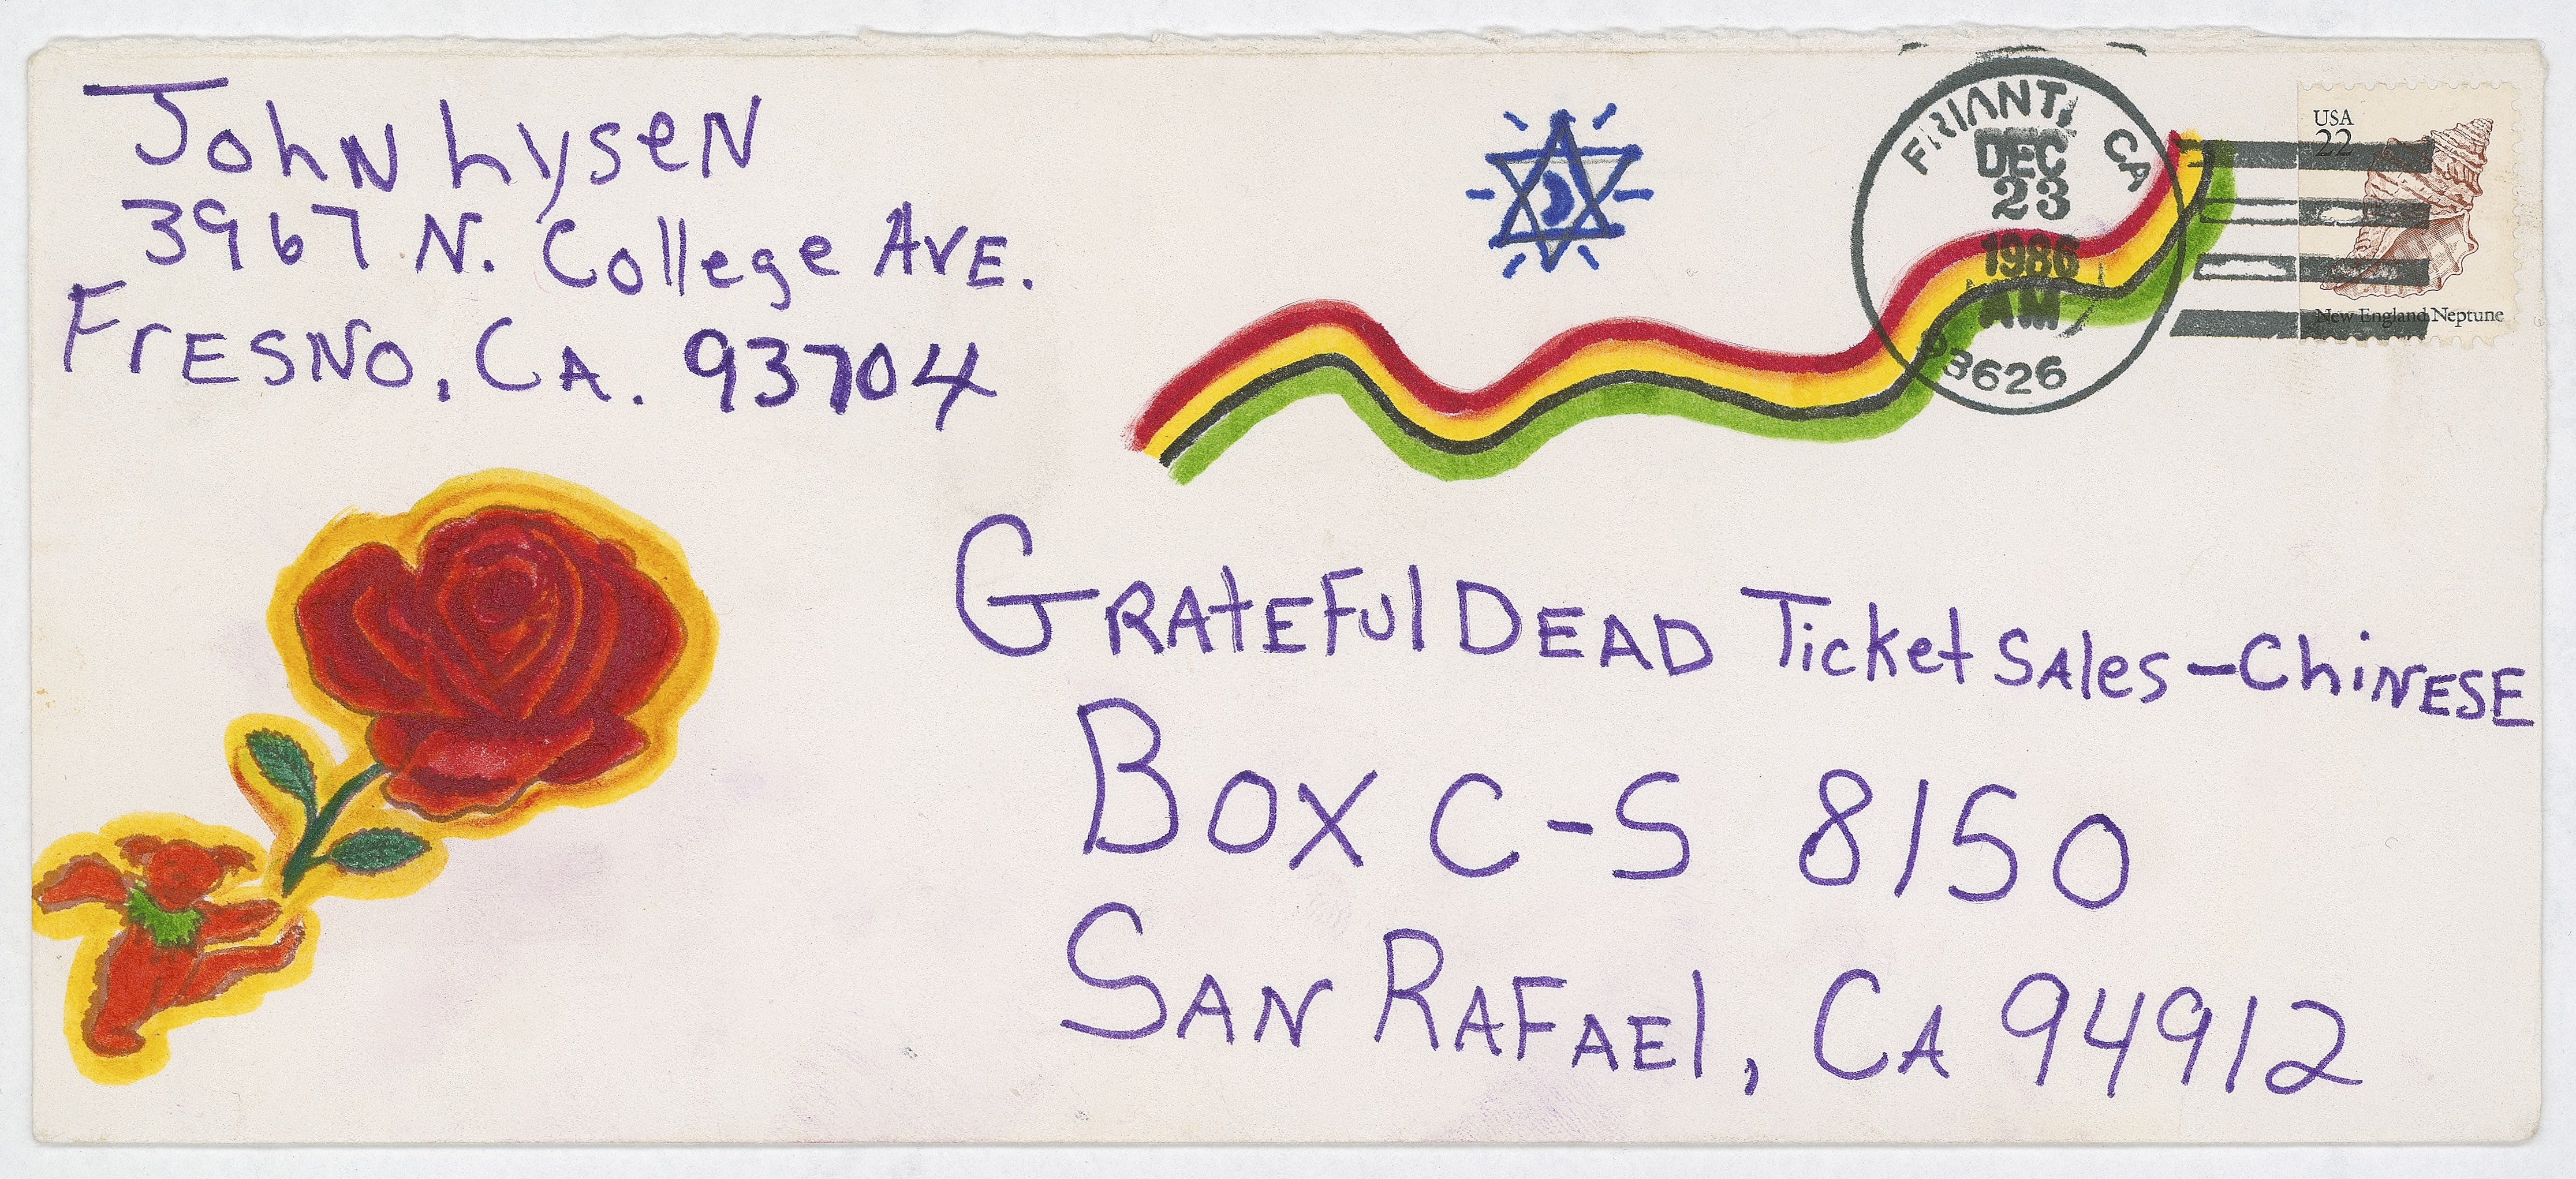 John Lysen
3967 N. College Ave.
Fresno, CA. 93704
FRIANT, CA
DEC
23
1986
AM
93626
USA
22
New England Neptune
Grateful Dead Ticket Sales - Chinese
Box C-S 8150
San Rafael, CA 94912